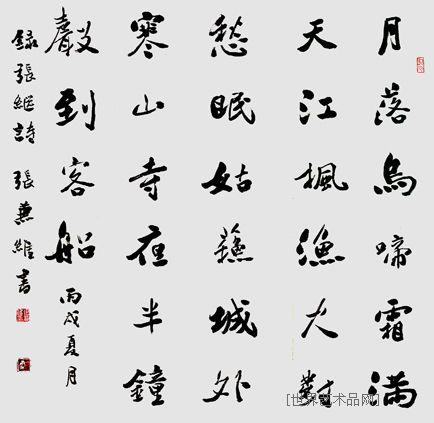 月落烏啼霜滿
天江楓漁火對
愁眠姑蘇城外
寒山寺夜半鐘
聲到客船 丙戌夏月
錄張繼詩 張兼維書
[世界艺术品网]